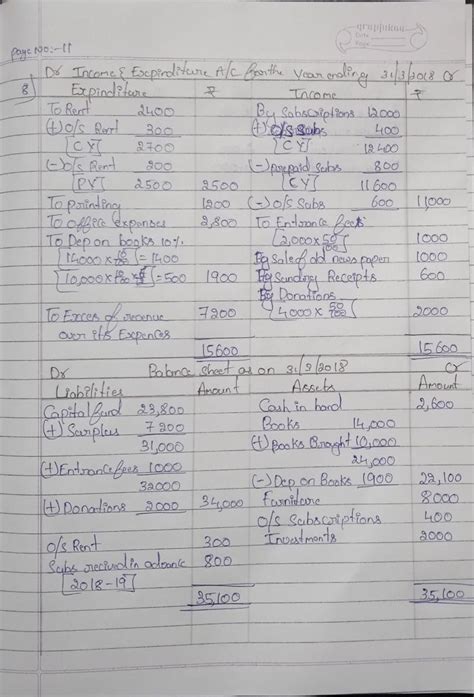 graphikou
Date
Page
Page No:-11
Dr Income & Expenditure A/C for the Year ending 31/3/2018 Cr
8) Expinditure ₹ Income ₹
To Rent 2400 By Sabscriptions 12000
(+) O/S Rent 300 (+) O/S Subs 400
[CY] 2700 12400
(-) O/S Rent 200 (-) prepaid Sabs 800
[PY] 2500 2500 [CY] 11600
To printing 1200 (-) O/S Sabs 600 11,000
To office expenses 2,800 To Entrance fees
To Dep on books 10% [2,000 x 50/100] 1000
[14000 x 10/100] = 1400 By Sale of old news paper 1000
[10,000 x 10/100 x 6/12] = 500 1900 By Sunding Receipts 600
By Donations
To Exces of revenue 7200 [4000 x 50/100] 2000
over its Expences
15600 15600
Dr Balance Sheet as on 31/3/2018 Cr
Liabilities Amount Assets Amount
Capital fund 23,800 Cash in hand 2,600
(+) Surplus 7200 Books 14,000
31,000 (+) Books Brought 10,000
24,000
(+) Entrance fees 1000 (-) Dep on Books 1900 22,100
32000 Furniture 8000
(+) Donations 2000 34,000 O/S Subscriptions 400
Investments 2000
O/S Rent 300
Sabs received in advance 800
[2018-19]
35,100 35,100